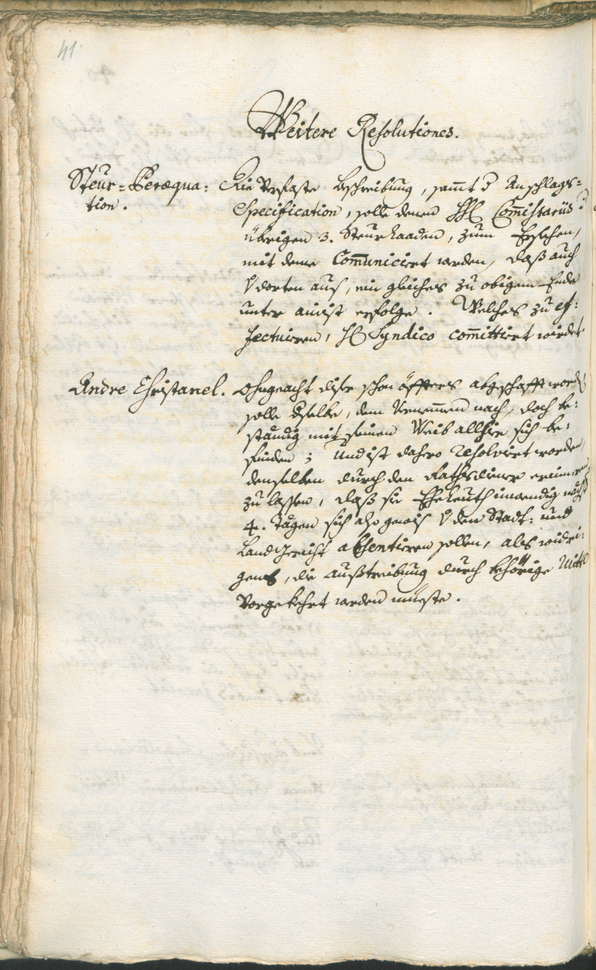 41
Weitere Resolutiones.
Steur-Peraequa-
tion.
Die verfaste beschreibung, sammt d Anschlags-
Specification, solle denen HH Comissariis d
übrigen 3. Steurstaaden, zum Ersehen,
mit deme Communiciert werden, daß auch
V dorten auß, ein gleiches zu obigem Ende
unter erfolge. Welches zu ef-
fectuiren, H Syndico committiert wordet
Andre Christanel.
Ohngeacht diser schon öffters abgeschafft worden
solle derselbe, dem Vernemmen nach, doch be-
ständig mit seinem Weib allhie sich be-
finden; Und ist dahero resolviert worden,
denselben durch den Rathsdiener erinnern
zu lassen, daß sie Eheleuth innendig nechst
4. tagen sich also gewis V den Stadt- und
Landgericht absentieren sollen, als widri-
gens, die Außtreibung durch behörige Mittl
Vorgekehrt werden müeste.